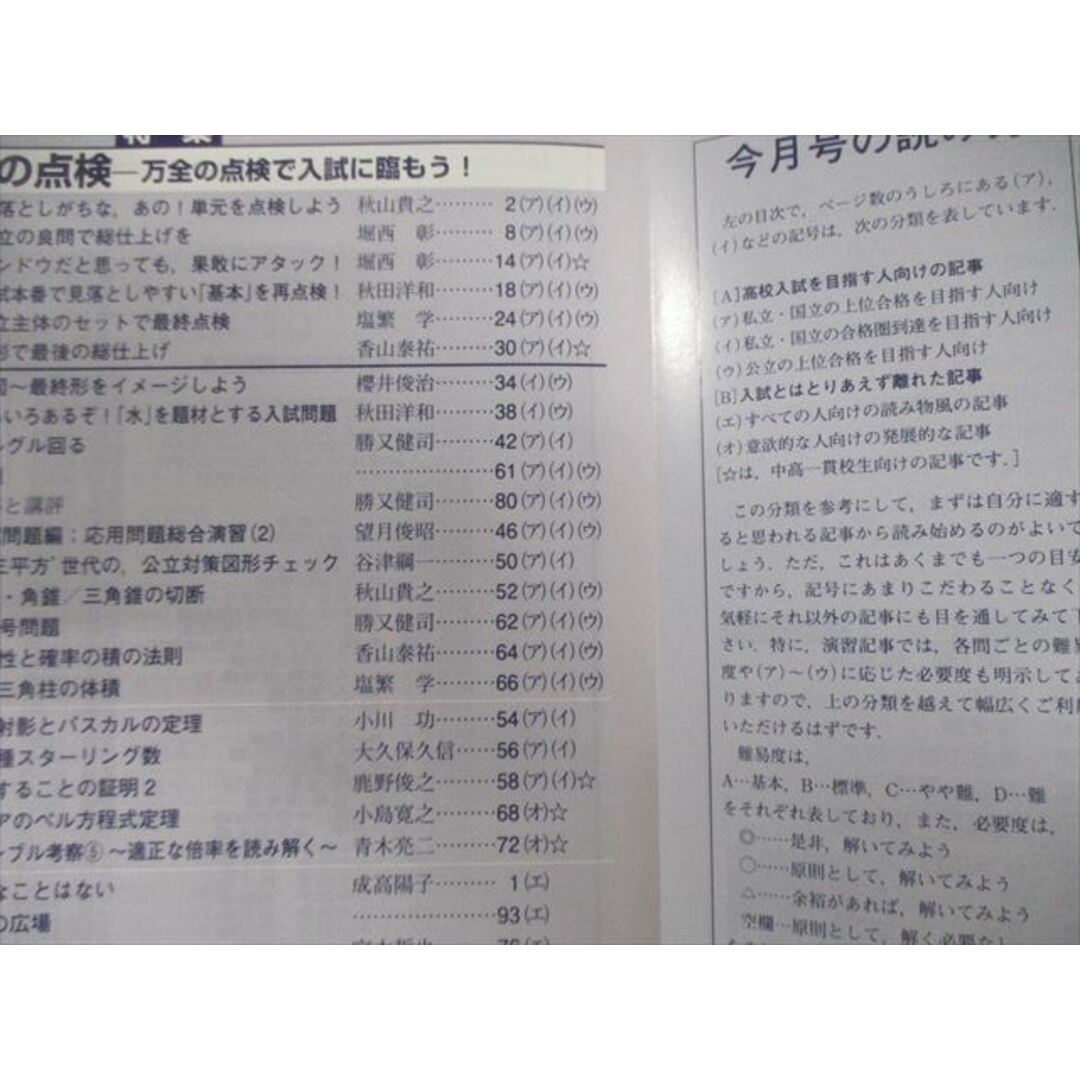 特 集
の点検―万全の点検で入試に臨もう！
落としがちな，あの！単元を点検しよう 秋山貴之……… 2(ア)(イ)(ウ)
立の良問で総仕上げを 堀西 彰……… 8(ア)(イ)(ウ)
ンドウだと思っても，果敢にアタック！ 堀西 彰………14(ア)(イ)☆
試本番で見落としやすい「基本」を再点検！ 秋田洋和………18(ア)(イ)(ウ)
立主体のセットで最終点検 塩繁 学………24(ア)(イ)(ウ)
形で最後の総仕上げ 香山泰祐………30(ア)(イ)☆
図〜最終形をイメージしよう 櫻井俊治………34(イ)(ウ)
いろあるぞ！「水」を題材とする入試問題 秋田洋和………38(イ)(ウ)
ルグル回る 勝又健司………42(ア)(イ)
…………………61(ア)(イ)(ウ)
と講評 勝又健司………80(ア)(イ)(ウ)
問題編；応用問題総合演習(2) 望月俊昭………46(ア)(イ)(ウ)
三平方"世代の，公立対策図形チェック 谷津綱一………50(ア)(イ)
・角錐／三角錐の切断 秋山貴之………52(ア)(イ)(ウ)
号問題 勝又健司………62(ア)(イ)(ウ)
性と確率の積の法則 香山泰祐………64(ア)(イ)(ウ)
三角柱の体積 塩繁 学………66(ア)(イ)(ウ)
射影とパスカルの定理 小川 功………54(ア)(イ)
種スターリング数 大久保久信……56(ア)(イ)
することの証明2 鹿野俊之………58(ア)(イ)☆
アのペル方程式定理 小島寛之………68(オ)☆
ンブル考察⑤〜適正な倍率を読み解く〜 青木亮二………72(オ)☆
なことはない 成高陽子……… 1(エ)
の広場 …………………93(エ)
今月号の読み
左の目次で，ページ数のうしろにある(ア)，
(イ)などの記号は，次の分類を表しています．
[A]高校入試を目指す人向けの記事
(ア)私立・国立の上位合格を目指す人向け
(イ)私立・国立の合格圏到達を目指す人向け
(ウ)公立の上位合格を目指す人向け
[B]入試とはとりあえず離れた記事
(エ)すべての人向けの読み物風の記事
(オ)意欲的な人向けの発展的な記事
[☆は，中高一貫校生向けの記事です．]
この分類を参考にして，まずは自分に適す
ると思われる記事から読み始めるのがよいで
しょう．ただ，これはあくまでも一つの目安
ですから，記号にあまりこだわることなく
気軽にそれ以外の記事にも目を通してみて下
さい．特に，演習記事では，各問ごとの難易
度や(ア)〜(ウ)に応じた必要度も明示してあ
りますので，上の分類を越えて幅広くご利用
いただけるはずです．
難易度は，
A…基本，B…標準，C…やや難，D…難
をそれぞれ表しており，また，必要度は，
◎……是非，解いてみよう
○……原則として，解いてみよう
△……余裕があれば，解いてみよう
空欄…原則として，解く必要なし